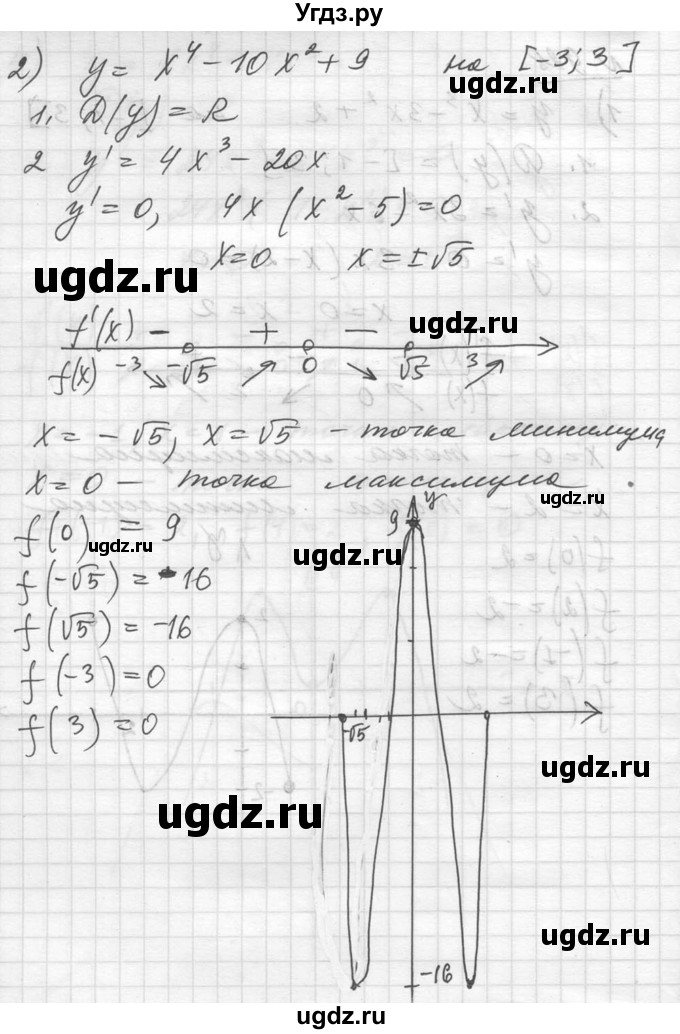 Угдз.ру
2) y = x⁴ - 10x² + 9 на [-3; 3]
ugdz.ru
1. D(y) = R
2 y' = 4x³ - 20x
y' = 0, 4x (x² - 5) = 0
x = 0 x = ±√5
ugdz.ru
ugdz.ru
f'(x) - + -
f(x) -3 ↘ -√5 ↗ 0 ↘ √5 3 ↗
x = -√5, x = √5 - точка минимума
x = 0 - точка максимума.
ugdz.ru
y
f(0) = 9
9
ugdz.ru
f(-√5) = -16
f(√5) = -16
f(-3) = 0
f(3) = 0
-√5
ugdz.ru
ugdz.ru
ugdz.ru
-16
ugdz.ru